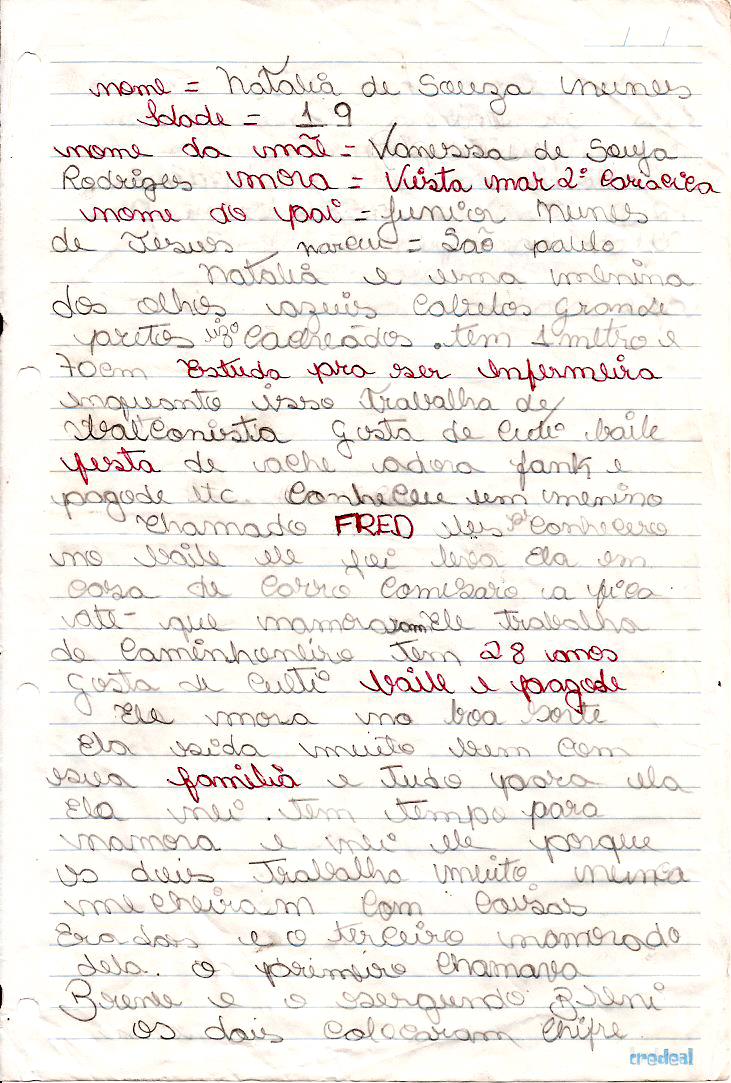 nome = Nataliã de Souza Nunes
Idade = 19
nome da mãe = Vanessa de Souza
Rodriges mora = Vista mar 2º Cariacica
nome do pai = Junior Nunes
de Jesus, narceu = São paulo
Nataliã e uma menina
dos olhos azuis Cabelos grande
pretos lizo Cacheados. tem 1 metro e
70cm Estuda pra ser Enfermeira
enquanto isso trabalha de
balConista Gosta de Cuti baile
festa de ache adora fank e
pagode etc. Conheceu um menino
chamado FRED eles se Conhecero
no baile ele foi leva Ela em
casa de Carro Comesaro a fica
até- que namoraram Ele trabalha
de Caminhoneiro tem 28 anos
Gosta de Cuti baile e pagode
Ele mora no boa sorte
Ela sida muito bem com
sua familiã e tudo para ela
Ela nei. tem tempo para
namora e nei ele porque
os dois trabalha muito nunca
mecheiram Com Coisas
Eradas e o terceiro namorado
dela. o primeiro Chamava
e o sergundo Breni
os dois colocaram chifre
credeal